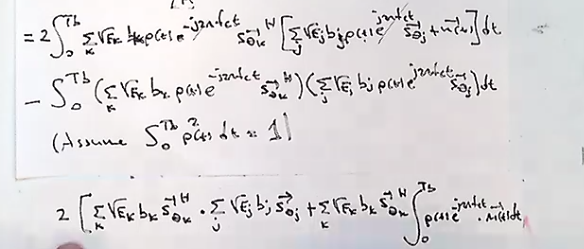 = 2 ∫₀^{Tb} Σ_k √E_k b_k p(t) e^{-j2πf_ct} \vec{s}_{θ_k}^H [Σ_j √E_j b_j p(t) e^{j2πf_ct} \vec{s}_{θ_j} + \vec{n}(t)] dt
− ∫₀^{Tb} (Σ_k √E_k b_k p(t) e^{-j2πf_ct} \vec{s}_{θ_k}^H) (Σ_j √E_j b_j p(t) e^{j2πf_ct} \vec{s}_{θ_j}) dt
(Assume ∫₀^{Tb} p²(t) dt = 1)
2 [Σ_k √E_k b_k \vec{s}_{θ_k}^H · Σ_j √E_j b_j \vec{s}_{θ_j} + Σ_k √E_k b_k \vec{s}_{θ_k}^H ∫₀^{Tb} p(t) e^{-j2πf_ct} · \vec{n}(t) dt